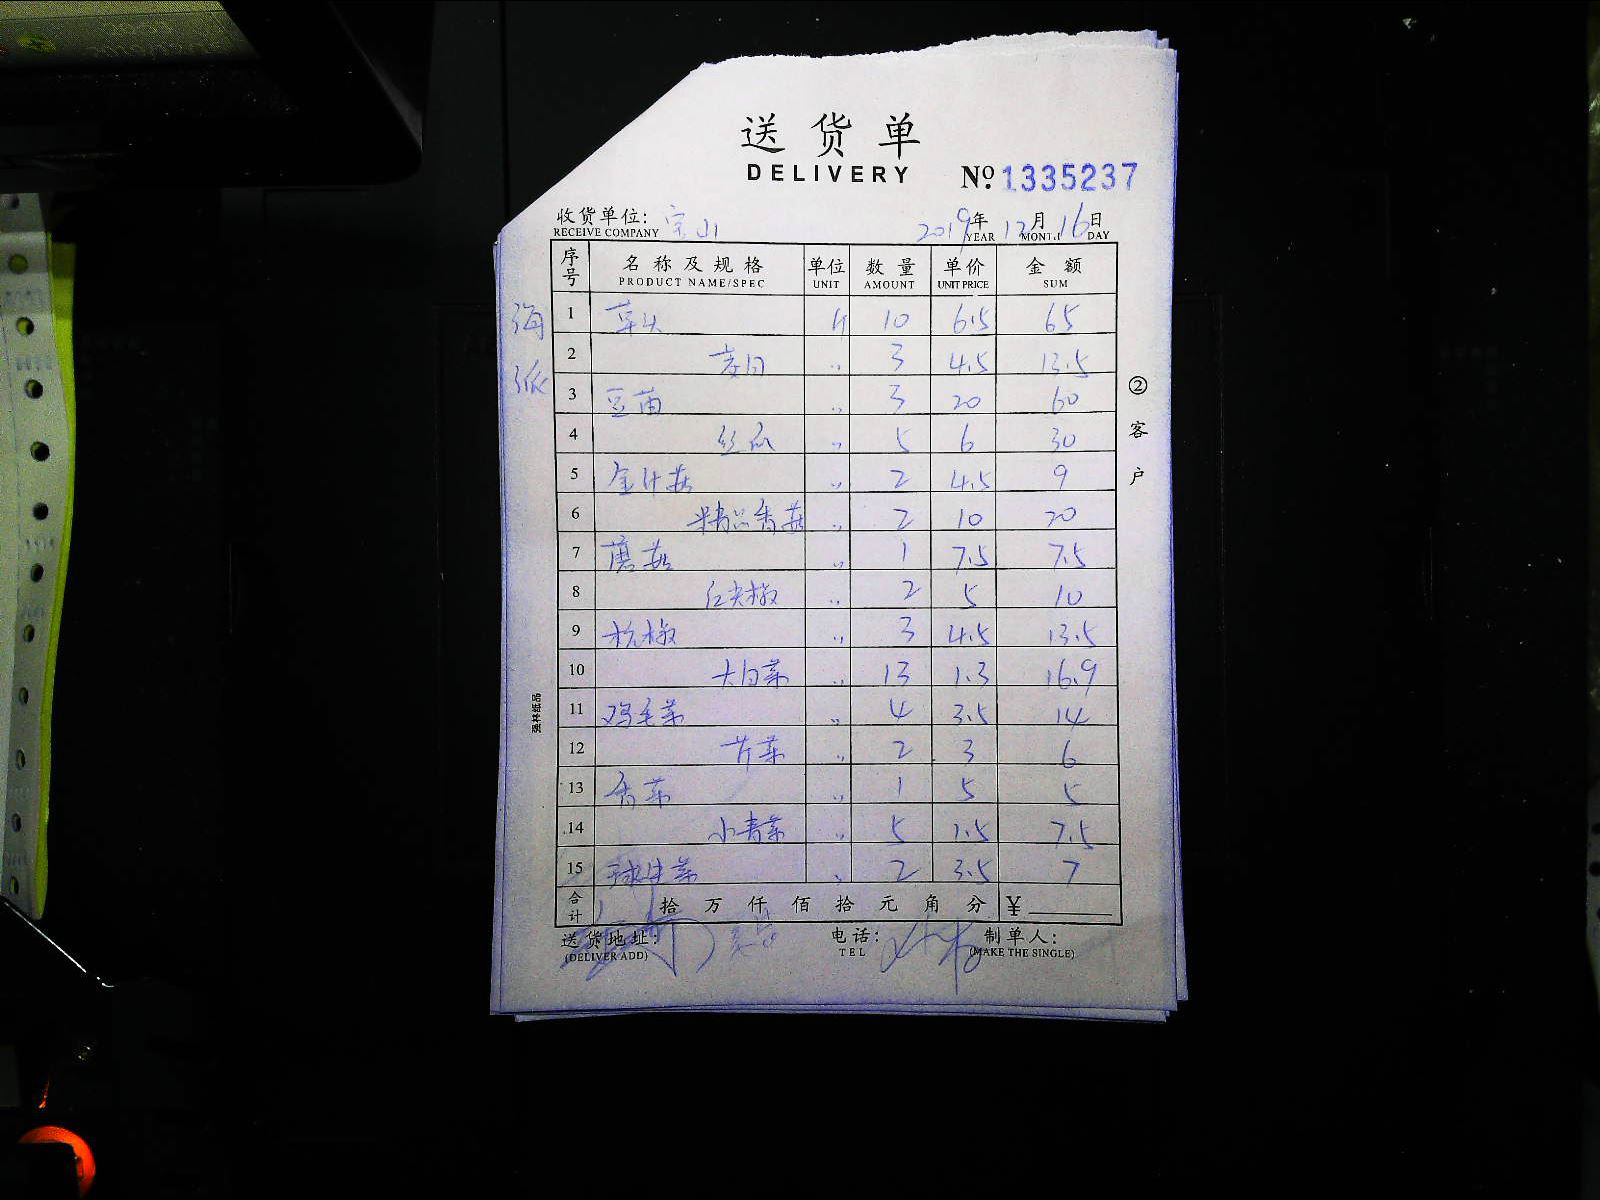 送货单
DELIVERY № 1335237
收货单位: 宝山 2019年 12月 16日
RECEIVE COMPANY YEAR MONTH DAY
序号 名称及规格 单位 数量 单价 金额
PRODUCT NAME/SPEC UNIT AMOUNT UNIT PRICE SUM
海派
1 草头 斤 10 6.5 65
2 茭白 〃 3 4.5 13.5
3 豆苗 〃 3 20 60
4 丝瓜 〃 5 6 30
5 金针菇 〃 2 4.5 9
6 精品香菇 〃 2 10 20
7 蘑菇 〃 1 7.5 7.5
8 红尖椒 〃 2 5 10
9 杭椒 〃 3 4.5 13.5
10 大白菜 〃 13 1.3 16.9
11 鸡毛菜 〃 4 3.5 14
12 芹菜 〃 2 3 6
13 香菜 〃 1 5 5
14 小青菜 〃 5 1.5 7.5
15 球生菜 〃 2 3.5 7
合计 拾 万 仟 佰 拾 元 角 分 ¥
送货地址: 电话: 制单人:
(DELIVER ADD) TEL (MAKE THE SINGLE)
②客户
强林纸品